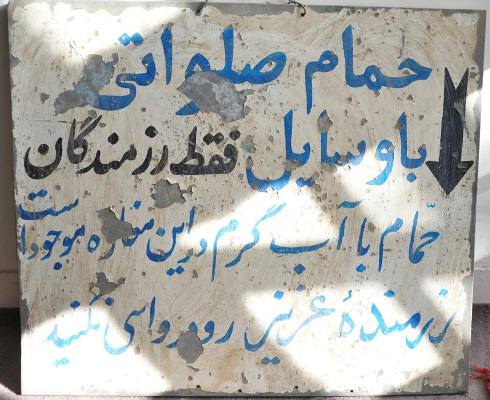 حمام صلواتی
با وسایل فقط رزمندگان
حمّام با آب گرم در این مغازه موجود است
رزمندهٔ عزیز رودرواسی نکنید